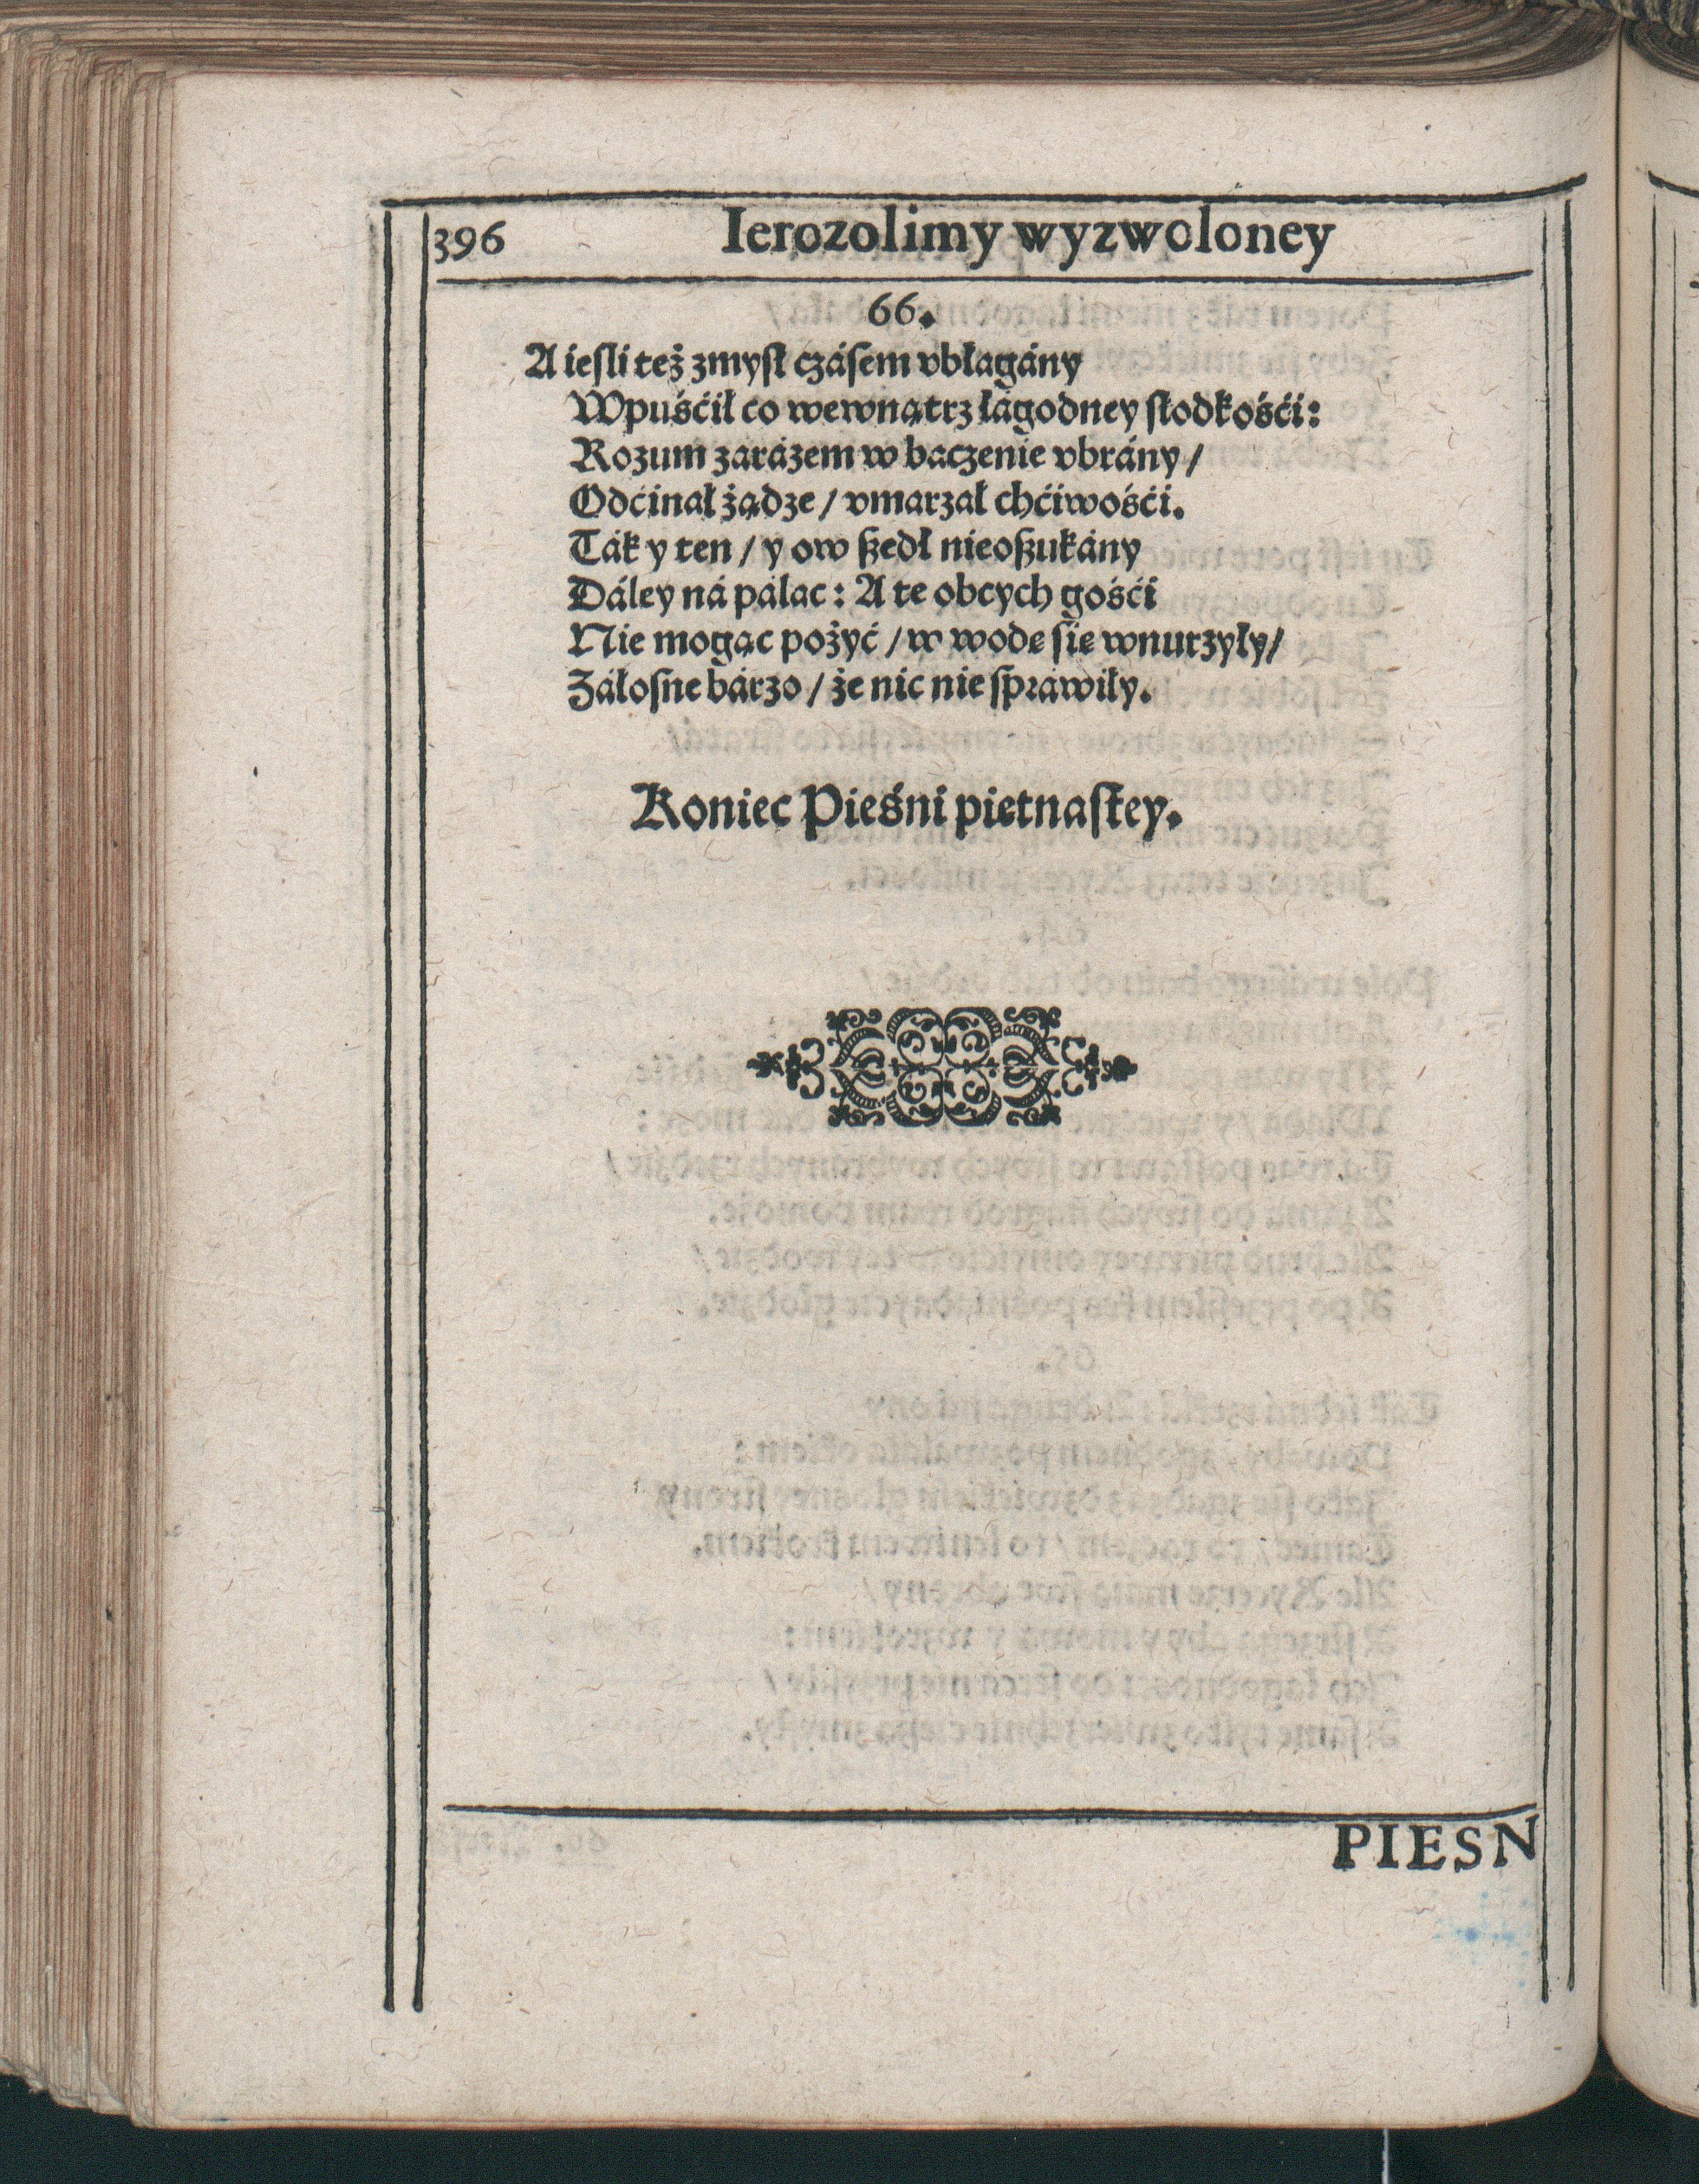 396 Ierozolimy wyzwoloney
66.
A ieſli też zmyſł czáſem vbłagány
Wpuśćił co wewnątrz łágodney ſłodkośći:
Rozum zarázem w baczenie vbrány/
Odćinał żądze/ vmarzał chćiwośći.
Ták y ten/ y ow ßedł nieoßukány
Dáley ná páłac: A te obcych gośći
Nie mogąc pożyć/ w wodę ſię wnurzyły/
Záłoſne bárzo/ że nic nie ſpráwiły.
Koniec Pieśni piętnaſtey.
PIESN